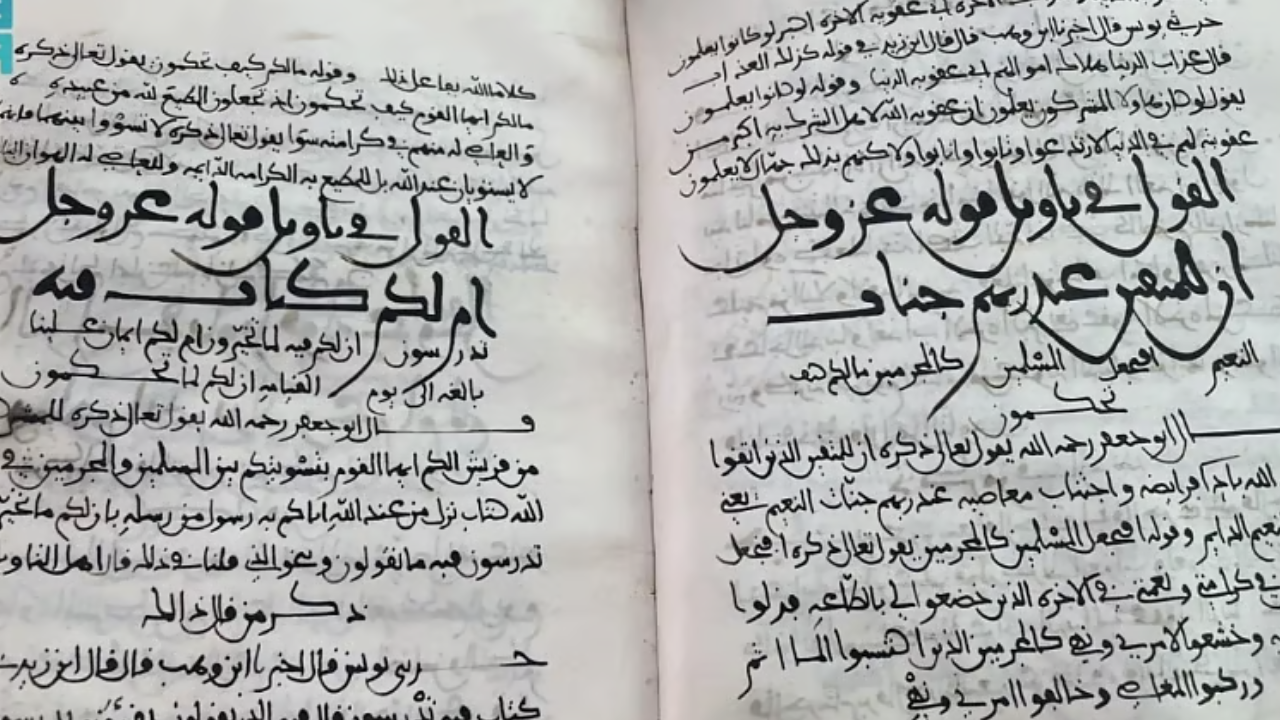 حدثني يونس قال اخبرنا ابن وهب قال قال ابن زيد في قوله كذلك العذاب
قال عذاب الدنيا هلاك اموالهم اي عقوبة الدنيا وقوله لو كانوا يعلمون
يقول لو كان هاولا المشركون يعلمون ان عقوبة الله لاهل الشرك به اكبر من
عقوبته لهم في الدنيا لارتدعوا وتابوا وانابوا ولاكنهم بذلك جهال لا يعلمون
القول في تاويل قوله عز وجل
ان للمتقين عند ربهم جنات
النعيم افنجعل المسلمين كالمجرمين مالكم كيف
تحكمون
قال ابو جعفر رحمه الله يقول تعالى ذكره ان للمتقين الذين اتقوا
الله باداء فرايضه واجتناب معاصيه عند ربهم جنات النعيم يعني
نعيم الدايم وقوله افنجعل المسلمين كالمجرمين يقول تعالى ذكره افنجعل
في كرامتي ونعمتي في الاخرة الذين خضعوا لي بالطاعة وذلوا
وخشعوا لامري ونهي كالمجرمين الذين اكتسبوا المآثم
وركبوا المعاصي وخالفوا امري ونهي
كلا ما الله بفاعل ذلك وقوله مالكم كيف تحكمون يقول تعالى ذكره
مالكم ايها القوم كيف تحكمون اذ تجعلون المطيع لله من عبيده
والعاصي له منهم في كرامته سوا يقول تعالى ذكره لا تسووا بينهما فانهما
لا يستويان عند الله بل المطيع له الكرامة الدايمة والعاصي له الهوان
القول في تاويل قوله عز وجل
ام لكم كتاب فيه
تدرسون ان لكم فيه لما تخيرون ام لكم ايمان علينا
بالغة الى يوم القيامة ان لكم لما تحكمون
قال ابو جعفر رحمه الله يقول تعالى ذكره للمشركين
من قريش الكم ايها القوم بتسويتكم بين المسلمين والمجرمين في
الله كتاب نزل من عند الله اتاكم به رسول من رسله بان لكم ما تخيرون
تدرسون فيه ما تقولون وبنحو الذي قلنا في ذلك قال اهل التاويل
ذكر من قال ذالك
حدثني يونس قال اخبرنا ابن وهب قال قال ابن زيد